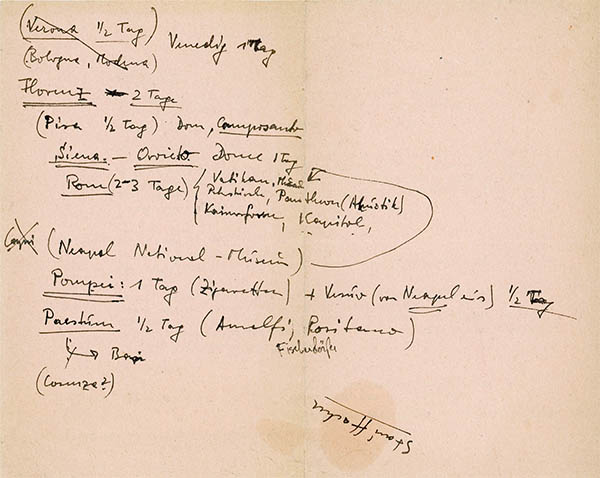 (Verona 1/2 Tag)
(Bologna, Modena) Venedig 1 Tag
Florenz 2 Tage
(Pisa 1/2 Tag) Dom, Camposanto
Siena. – Orvieto Dome 1 Tag
Rom (2–3 Tage) Vatikan,
Pantheon (Akustik)
Kaiserforen, Kapitol,
Capri (Neapel National-Museum)
Pompei: 1 Tag (Zigaretten) + Vesuv (von Neapel aus) 1/2 Tag
Paestum 1/2 Tag (Amalfi, Positano)
Fischerdörfer
↳ Bari
(Cosenza?)